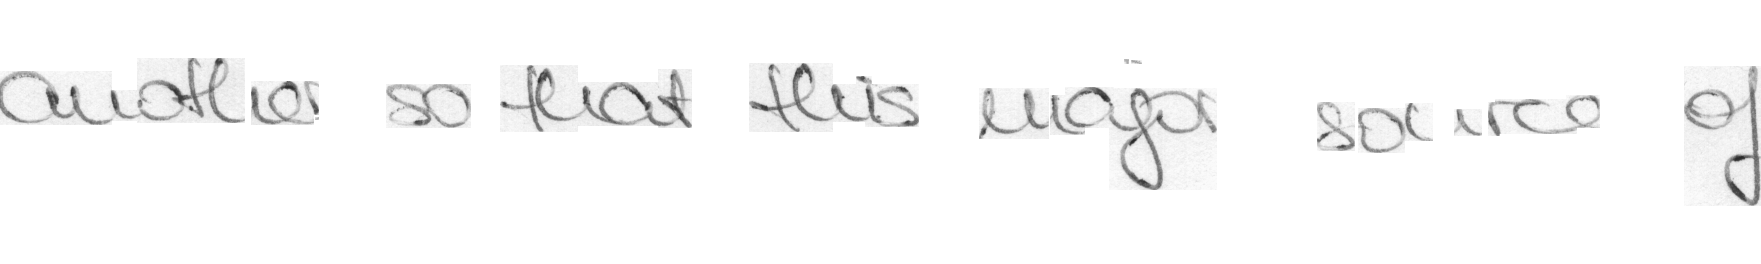 another so that this major source of